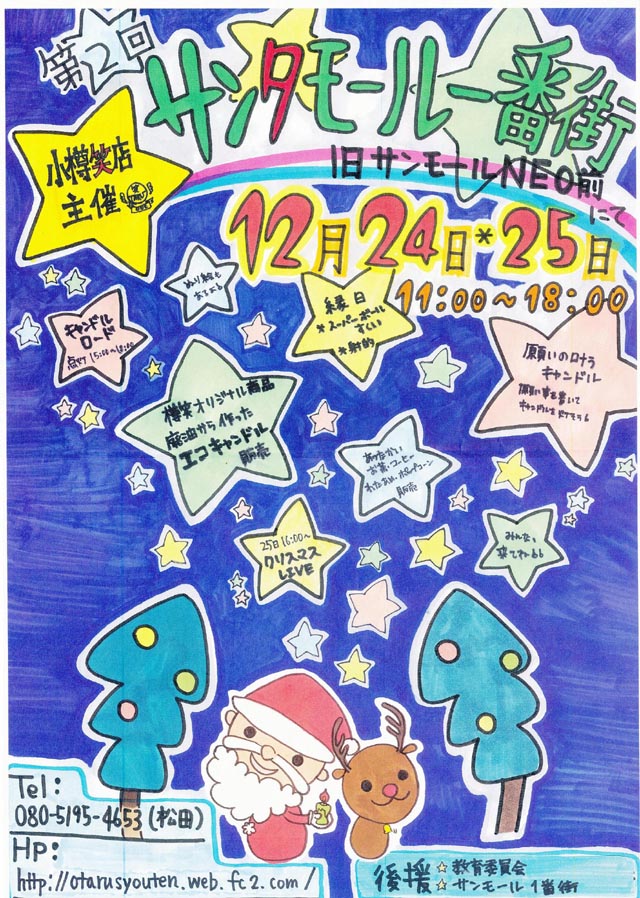 第2回
サンタモール一番街
小樽笑店
主催
旧サンモールNEO前
にて
12月24日*25日
11:00～18:00
ぬり絵も
あるよ♪
縁日
*スーパーボール
すくい
*射的
キャンドル
ロード
点灯 15:00～18:00
願いの叶う
キャンドル
願い事を書いて
キャンドルを灯そう♪
樽笑オリジナル商品
廃油から作った
エコキャンドル
販売
あったかい
お茶・コーヒー
わたあめ、ポップコーン
販売
25日16:00～
クリスマス
LIVE
みんな
来てね♪♪
Tel:
080-5195-4653 (松田)
HP:
http://otarusyouten.web.fc2.com/
後援
☆教育委員会
☆サンモール1番街